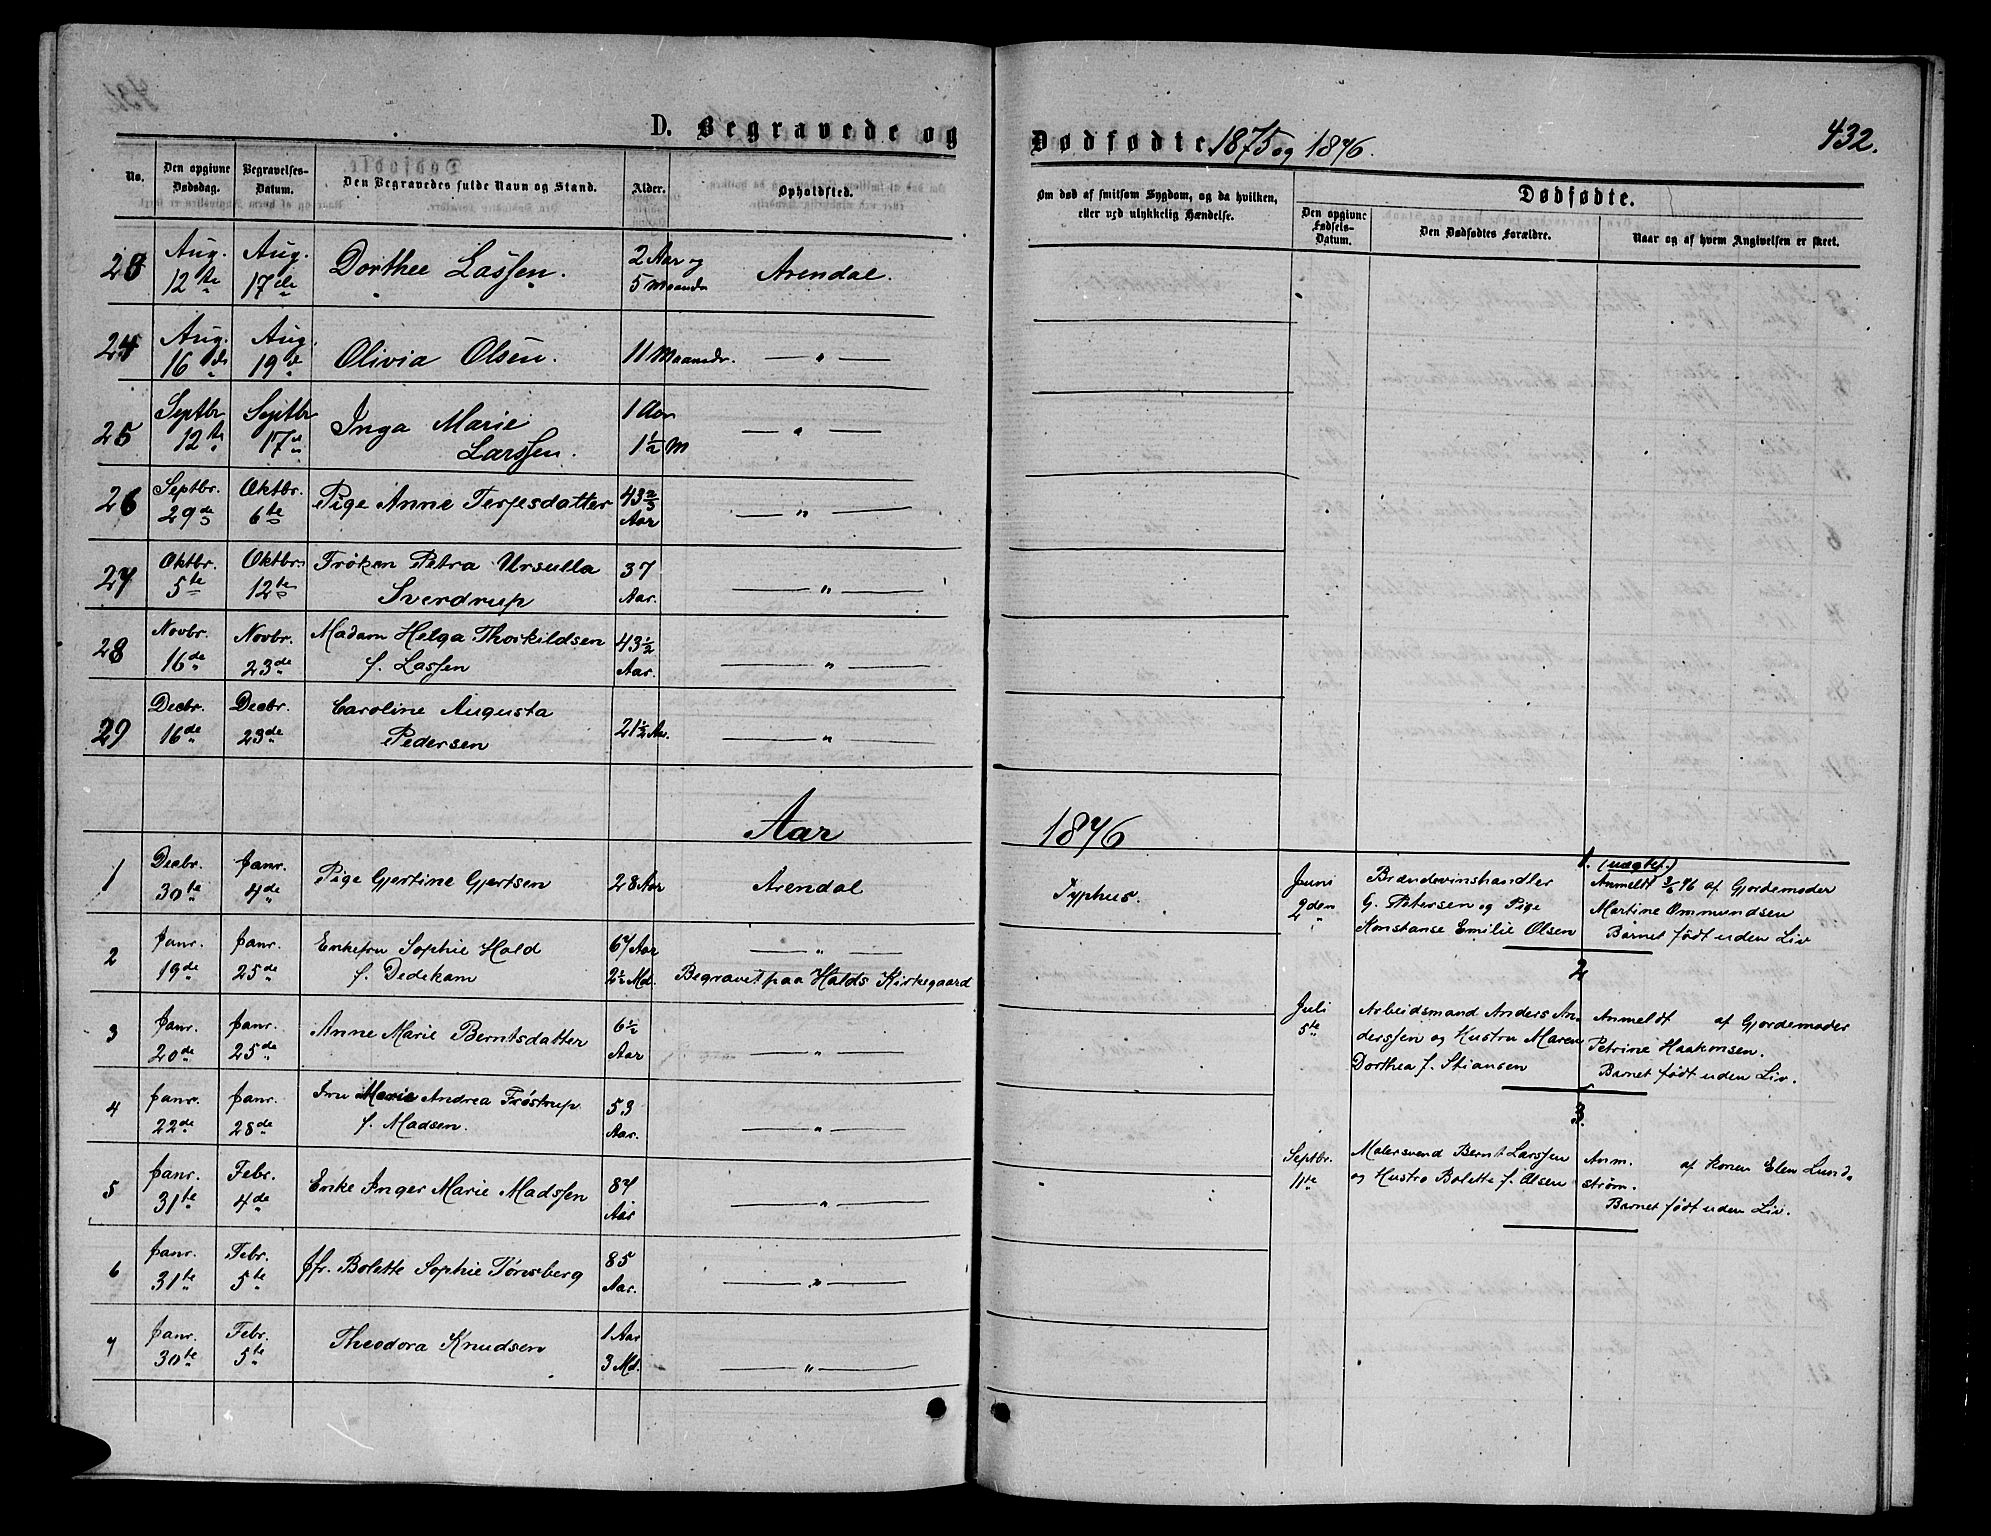 D. Begravede og Dødfødte 1875 og 1876.
432.
No.
Den opgivne Dødsdag.
Begravelses-Datum.
Den Begravedes fulde Navn og Stand.
Alder.
Opholdsted.
Om død af smitsom Sygdom, og da hvilken,
eller ved ulykkelig Hændelse.
Dødfødte.
Den opgivne Fødsels-Datum.
Den Dødfødtes Forældre.
Naar og af hvem Angivelsen er skeet.
23 Aug. 12te Aug. 17de Dorthee Lassen. 2 Aar og 5 Maander Arendal.
24 Aug. 16de Aug. 19de Olivia Olsen. 11 Maander. — " —
25 Septbr 12te Septbr 17de Inga Marie Larssen. 1 Aar 1½ M — " —
26 Septbr. 29de Oktbr. 6te Pige Anne Terjesdatter 43 2/3 Aar — " —
27 Oktbr. 5te Oktbr. 12te Frøken Petra Ursulla Sverdrup 37 Aar. — " —
28 Novbr. 16de Novbr. 23de Madam Helga Thorkildsen f. Lassen 43½ Aar. — " —
29 Decbr. 16de Decbr. 23de Caroline Augusta Pedersen 21½ Aar. — " —
Aar 1876
1 Decbr. 30te Janr. 4de Pige Gjertine Gjertsen 28 Aar Arendal Typhus.
2 Janr. 19de Janr. 25de Enkefru Sophie Hald f. Dedekam 67 Aar 2½ Md. — " — Begravet paa Halds Kirkegaard
3 Janr. 20de Janr. 25de Anne Marie Berntsdatter 6½ Aar — " —
4 Janr. 22de Janr. 28de Fru Marie Andrea Frøstrup f. Madsen. 53 Aar. — " —
5 Janr. 31te Febr. 4de Enke Inger Marie Madssen 87 Aar — " —
6 Janr. 31te Febr. 5te Jfr. Bolette Sophie Tønsberg 85 Aar. — " —
7 Janr. 30te Febr. 5te Theodora Knudsen 1 Aar 3 Md. — " —
1. (uægte.)
Juni 2den
Brændevinshandler
G. Petersen og Pige
Konstanse Emilie Olsen
Anmeldt 3/6 76 af Gjordemoder
Martine Ommundsen
Barnet født uden Liv
2
Juli 5te
Arbeidsmand Anders An-
derssen og Hustru Maren
Dorthea f. Stiansen
Anmeldt af Gjordemoder
Petrine Haakonsen.
Barnet født uden Liv.
3.
Septbr. 11te
Malersvend Bernt Larssen
og Hustro Bolette f. Olsen
Anm. af Konen Elen Lund-
strøm.
Barnet født uden Liv.